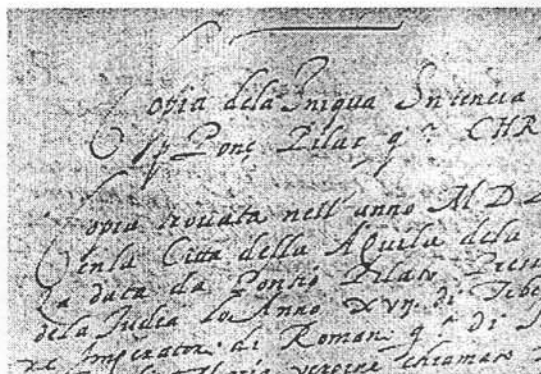 Copia dela Iniqua Sntencia
p Ponç Pilat q.ᵃ CHR
Copia trovata nell' anno M.D.L
enla Citta della Aquila dela
data da Pontio Pilato Presi
dela Judea lo Anno xvij. di Tibe
re Imperator di Roman q.ᵃ di
Maria vergine chiamato